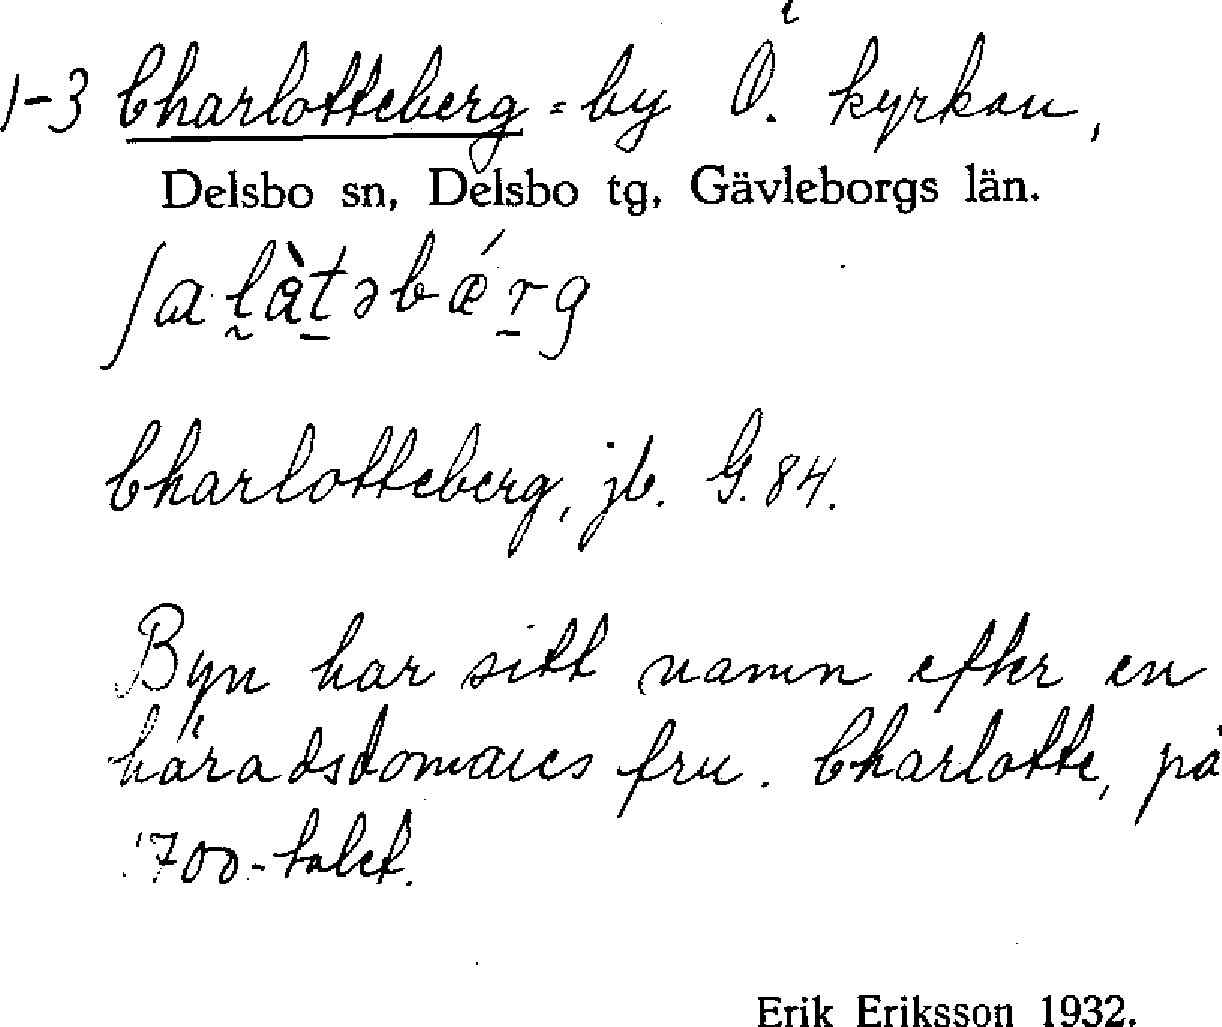 1-3 Charlotteberg = by Ö. kyrkan,
Delsbo sn, Delsbo tg, Gävleborgs län.
ʃaḷàt̠əbǽr̠g
Charlotteberg, jb. G. 84.
Byn har sitt namn efter en
häradsdomares fru. Charlotte, på
1700-talet.
Erik Eriksson 1932.